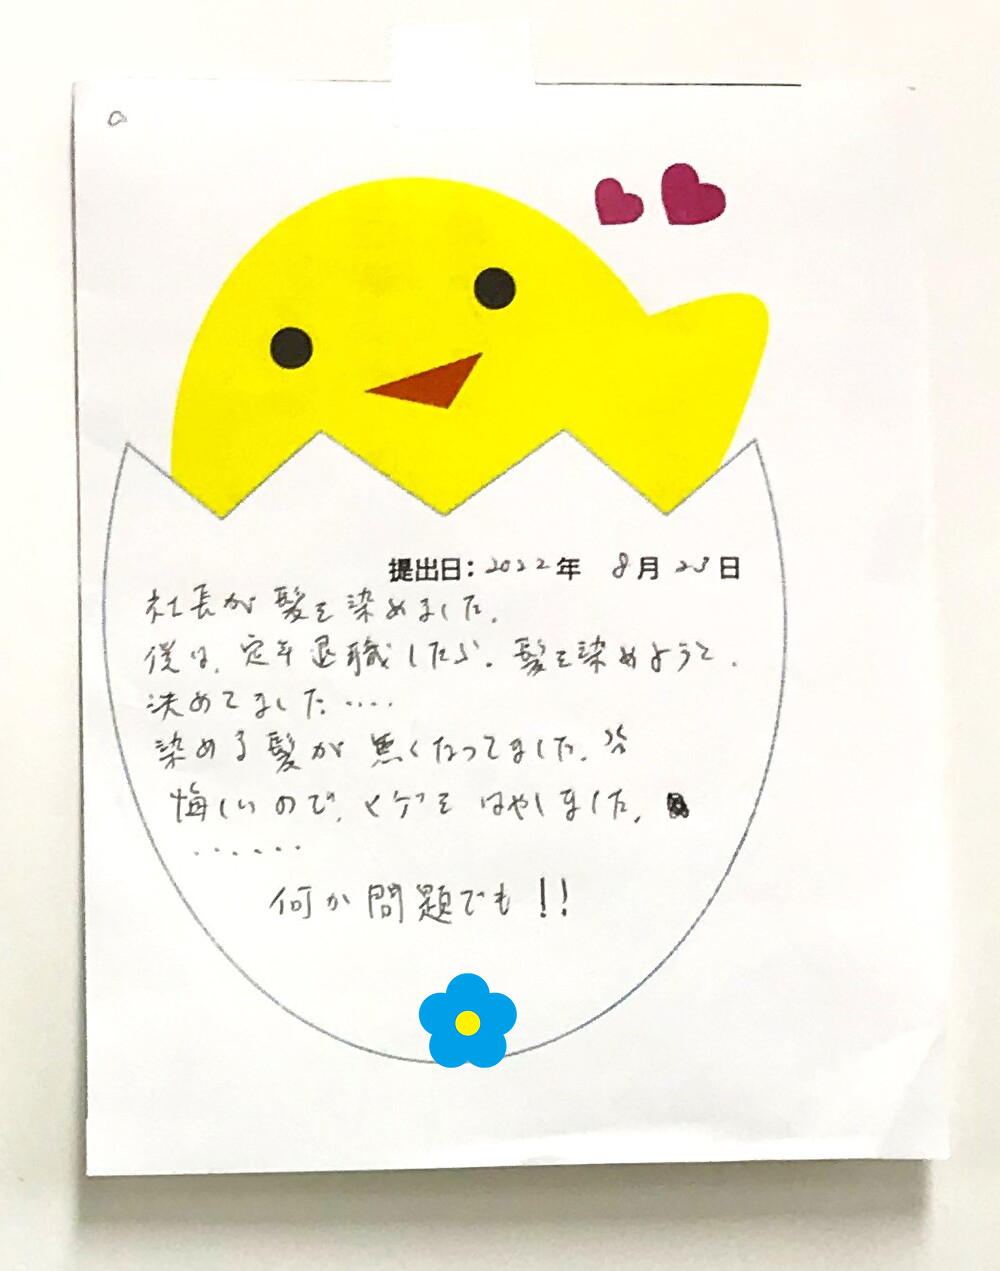 提出日：2022年 8月23日
社長が髪を染めました。
僕は、定年退職したら、髪を染めようと、
決めてました‥‥
染める髪が無くなってました。
悔しいので、ヒゲをはやしました。
‥‥‥
何か問題でも！！